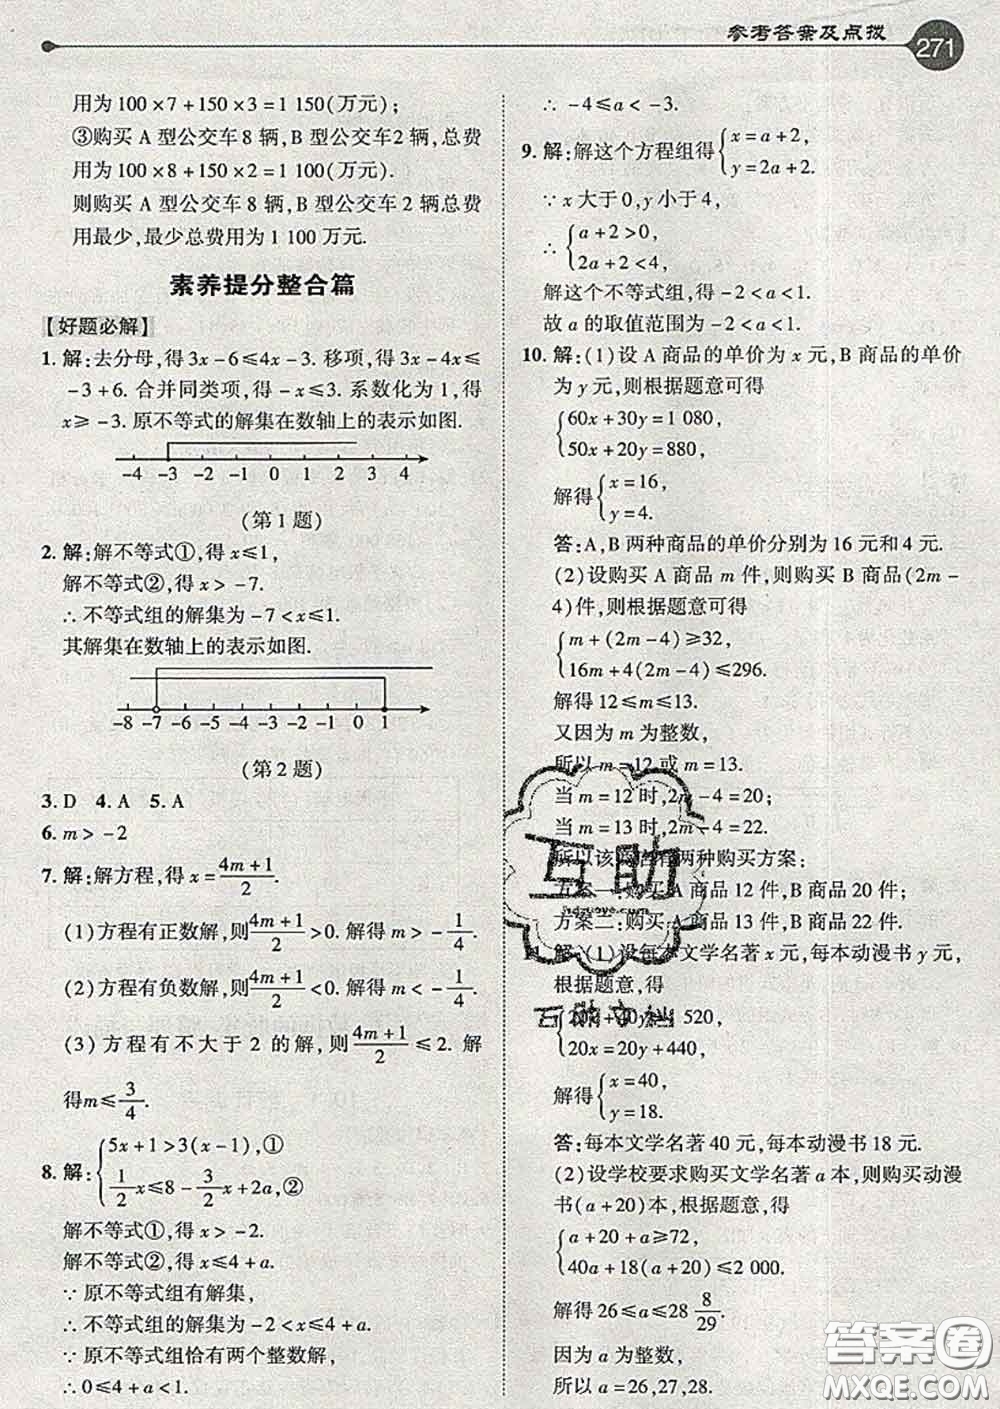 参考答案及点拨
271
用为100×7+150×3=1 150(万元);
③购买 A 型公交车8 辆,B 型公交车2 辆,总费
用为100×8+150×2=1 100(万元).
则购买 A 型公交车8 辆,B 型公交车 2 辆总费
用最少,最少总费用为1 100万元.
素养提分整合篇
【好题必解】
1. 解:去分母,得3x-6≤4x-3. 移项,得3x-4x≤
-3+6. 合并同类项,得-x≤3. 系数化为1,得
x≥-3. 原不等式的解集在数轴上的表示如图.
-4 -3 -2 -1 0 1 2 3 4
(第1题)
2. 解:解不等式①,得 x≤1,
解不等式②,得 x>-7.
∴ 不等式组的解集为-7<x≤1.
其解集在数轴上的表示如图.
-8 -7 -6 -5 -4 -3 -2 -1 0 1
(第2题)
3. D 4. A 5. A
6. m>-2
7. 解:解方程,得 x=(4m+1)/2.
(1)方程有正数解,则(4m+1)/2>0. 解得 m>-1/4.
(2)方程有负数解,则(4m+1)/2<0. 解得 m<-1/4.
(3)方程有不大于2的解,则(4m+1)/2≤2. 解
得m≤3/4.
8. 解:{5x+1>3(x-1),①
1/2x≤8-3/2x+2a,②
解不等式①,得 x>-2.
解不等式②,得 x≤4+a.
∵ 原不等式组有解集,
∴ 不等式组的解集为-2<x≤4+a.
∵ 原不等式组恰有两个整数解,
∴ 0≤4+a<1.
∴ -4≤a<-3.
9. 解:解这个方程组得{x=a+2,
y=2a+2.
∵ x 大于0,y 小于4,
∴ {a+2>0,
2a+2<4,
解这个不等式组,得-2<a<1.
故 a 的取值范围为-2<a<1.
10. 解:(1)设 A 商品的单价为 x 元,B 商品的单价
为 y 元,则根据题意可得
{60x+30y=1 080,
50x+20y=880,
解得{x=16,
y=4.
答:A,B 两种商品的单价分别为16元和4元.
(2)设购买 A 商品 m 件,则购买 B 商品(2m-
4)件,则根据题意可得
{m+(2m-4)≥32,
16m+4(2m-4)≤296.
解得12≤m≤13.
又因为 m 为整数,
所以 m=12 或 m=13.
当 m=12 时,2m-4=20;
当 m=13 时,2m-4=22.
所以该 有两种购买方案:
方案一:购买 A 商品 12 件,B 商品 20 件;
方案二:购买 A 商品 13 件,B 商品 22 件.
解:(1)设每本文学名著 x 元,每本动漫书 y 元,
根据题意,得
{20x+40y=1 520,
20x=20y+440,
解得{x=40,
y=18.
答:每本文学名著 40 元,每本动漫书18元.
(2)设学校要求购买文学名著 a 本,则购买动漫
书(a+20)本,根据题意,得
{a+20+a≥72,
40a+18(a+20)≤2 000.
解得26≤a≤28 8/29.
因为 a 为整数,
所以 a=26,27,28.
互助
答案圈
MXQE.COM